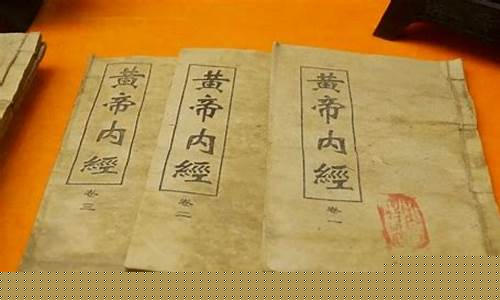 黃帝内經
卷三
黃帝内經
卷二
黃帝内經
卷一